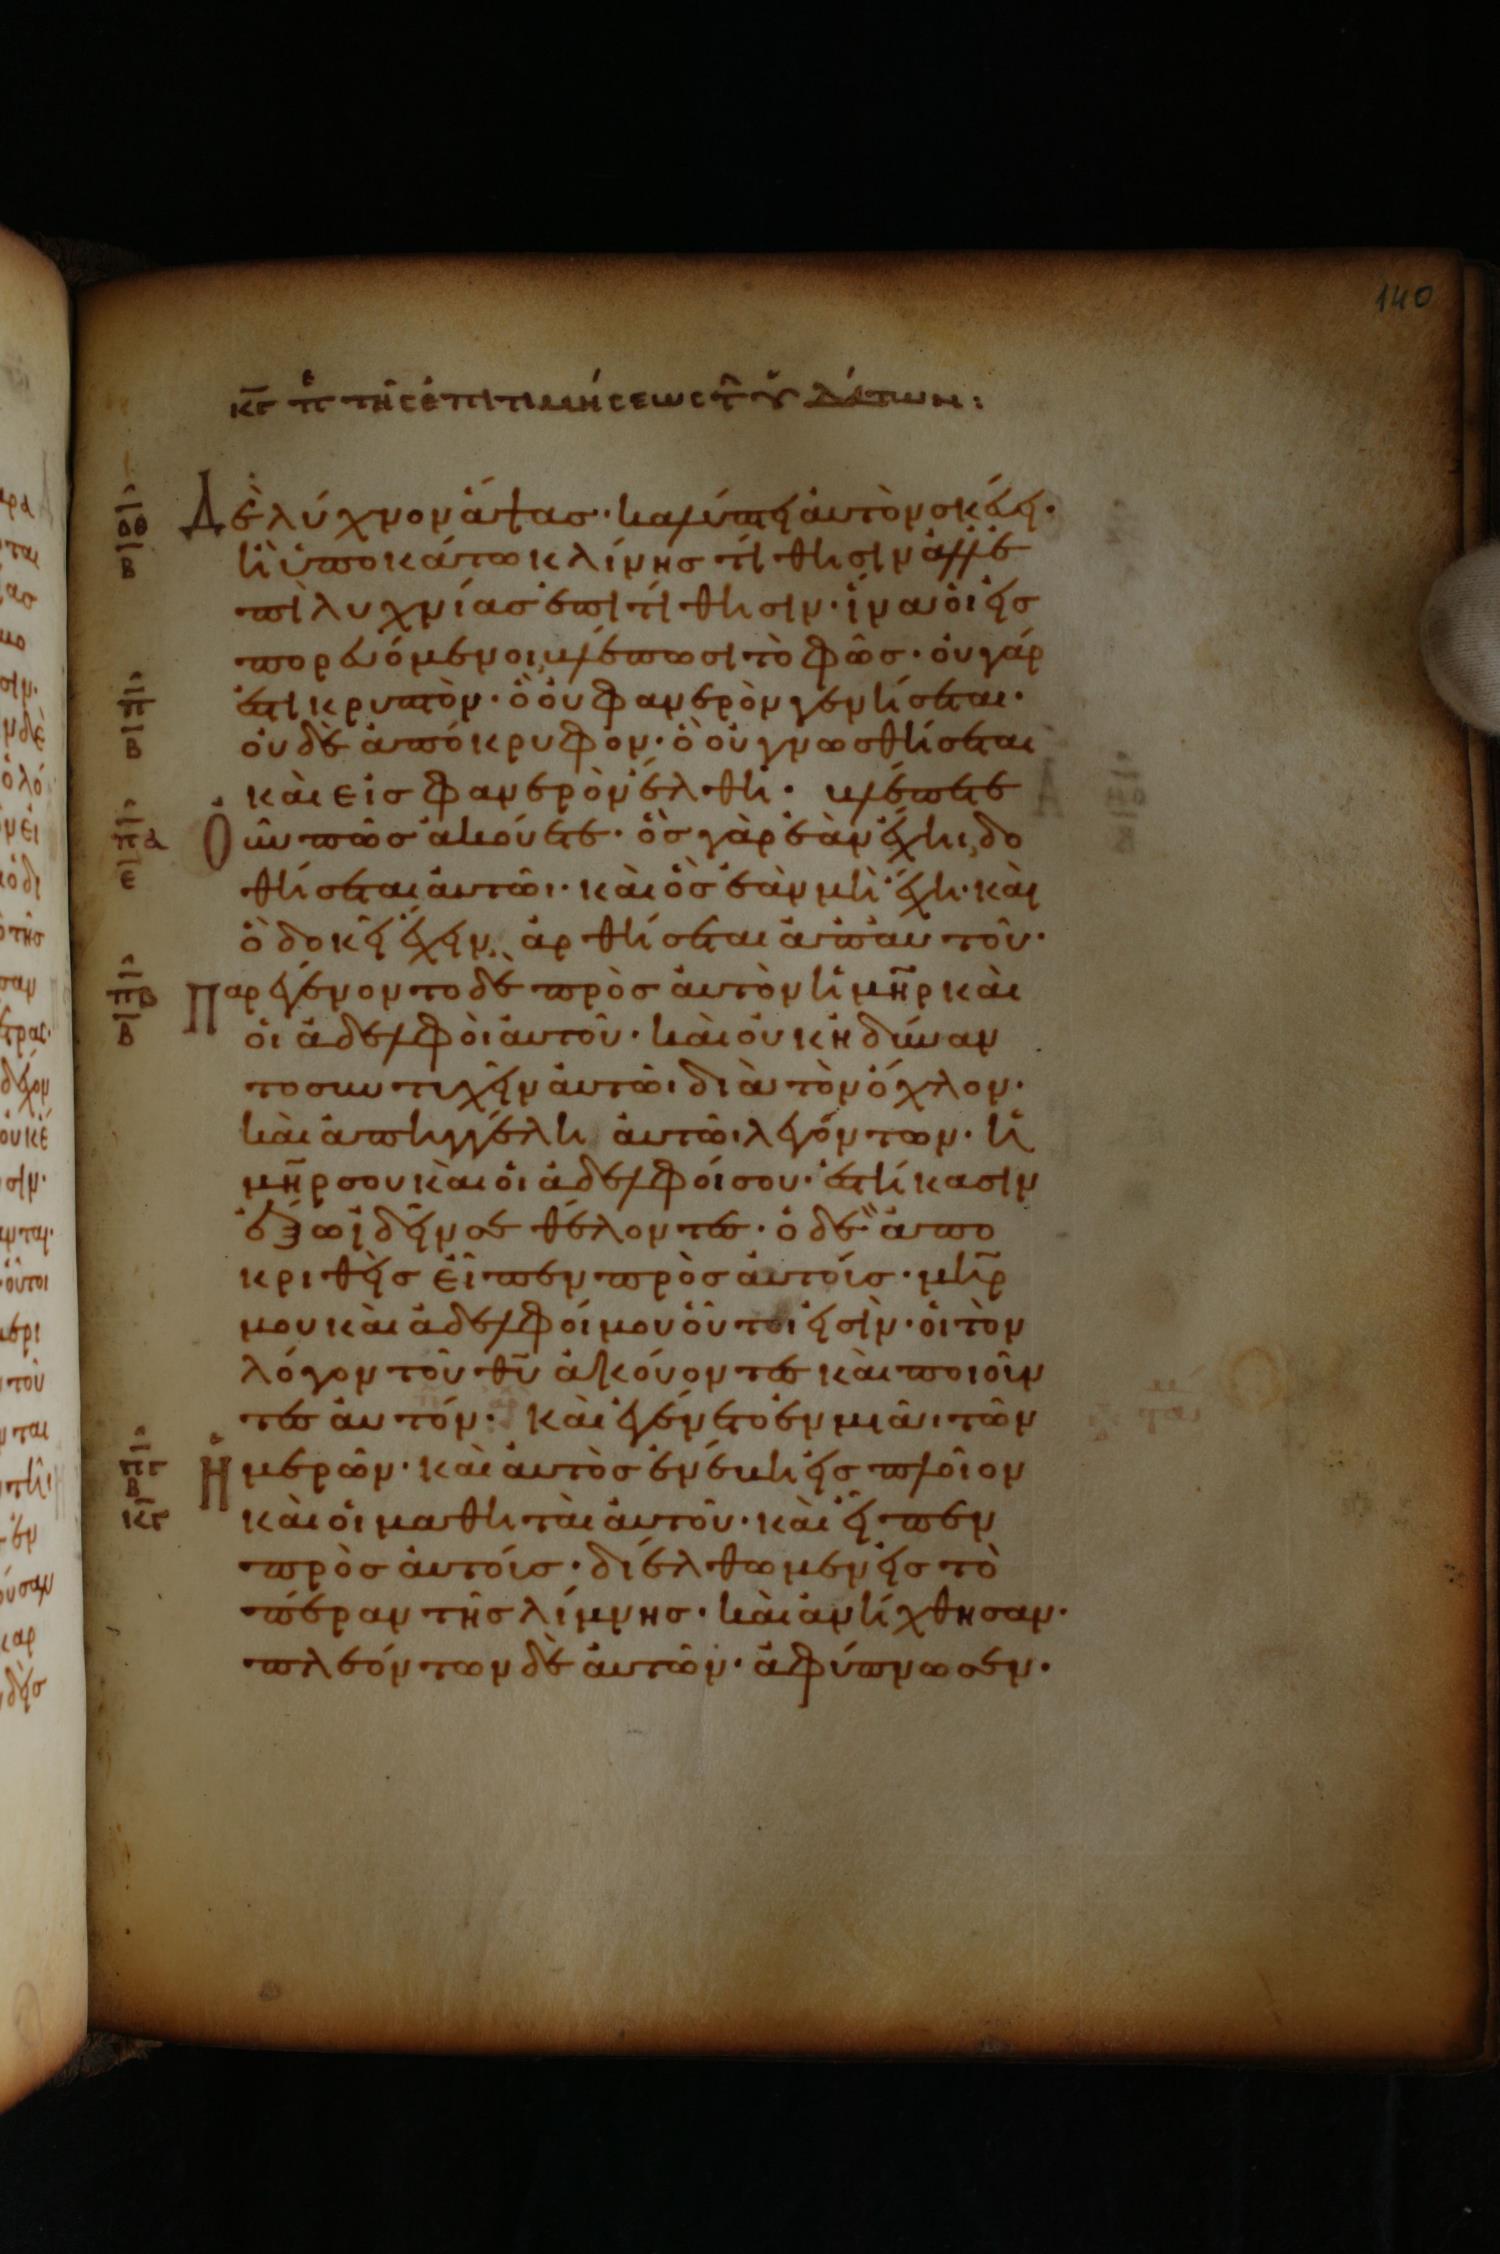 140
κγ πε τῆς ἐπιτιμήσεως τοῦ ὑδάτων:
δὲ λύχνον ἅψας· καλύπτει αὐτὸν σκεύει·
ἢ ὑποκάτω κλίνης τίθησιν ἀλλ' ἐ
πὶ λυχνίας ἐπιτίθησιν· ἵνα οἱ εἰσ
πορευόμενοι βλέπωσι τὸ φῶς· οὐ γάρ
ἐστι κρυπτὸν· ὃ οὐ φανερὸν γενήσεται·
οὐδὲ ἀπόκρυφον· ὃ οὐ γνωσθήσεται
καὶ εἰς φανερὸν ἔλθη· βλέπετε
οὖν πῶς ἀκούετε· ὃς γὰρ ἐὰν ἔχη, δο
θήσεται αὐτῶι· καὶ ὃς ἐὰν μὴ ἔχη· καὶ
ὃ δοκεῖ ἔχειν, ἀρθήσεται ἀπ' αὐτοῦ·
Παρεγένοντο δὲ πρὸς αὐτὸν ἡ μηρ καὶ
οἱ ἀδελφοὶ αὐτοῦ· καὶ οὐκ ἠδύναν
το συντυχεῖν αὐτῶι διὰ τὸν ὄχλον·
καὶ ἀπηγγέλη αὐτῶι λεγόντων· ἡ
μηρ σου καὶ οἱ ἀδελφοί σου· ἑστήκασιν
ἔξω ἰδεῖν σε θέλοντες· ὁ δὲ ἀπο
κριθεὶς εἶπεν πρὸς αὐτούς· μηρ
μου καὶ ἀδελφοί μου οὗτοι εἰσὶν· οἱ τὸν
λόγον τοῦ θυ ἀκούοντες καὶ ποιοῦν
τες αὐτόν· καὶ ἐγένετο ἐν μιᾶι τῶν
ἡμερῶν· καὶ αὐτὸς ἐνέβη εἰς πλοῖον
καὶ οἱ μαθηταὶ αὐτοῦ· καὶ εἶπεν
πρὸς αὐτούς· διέλθωμεν εἰς τὸ
πέραν τῆς λίμνης· καὶ ἀνήχθησαν·
πλεόντων δὲ αὐτῶν· ἀφύπνωσεν·